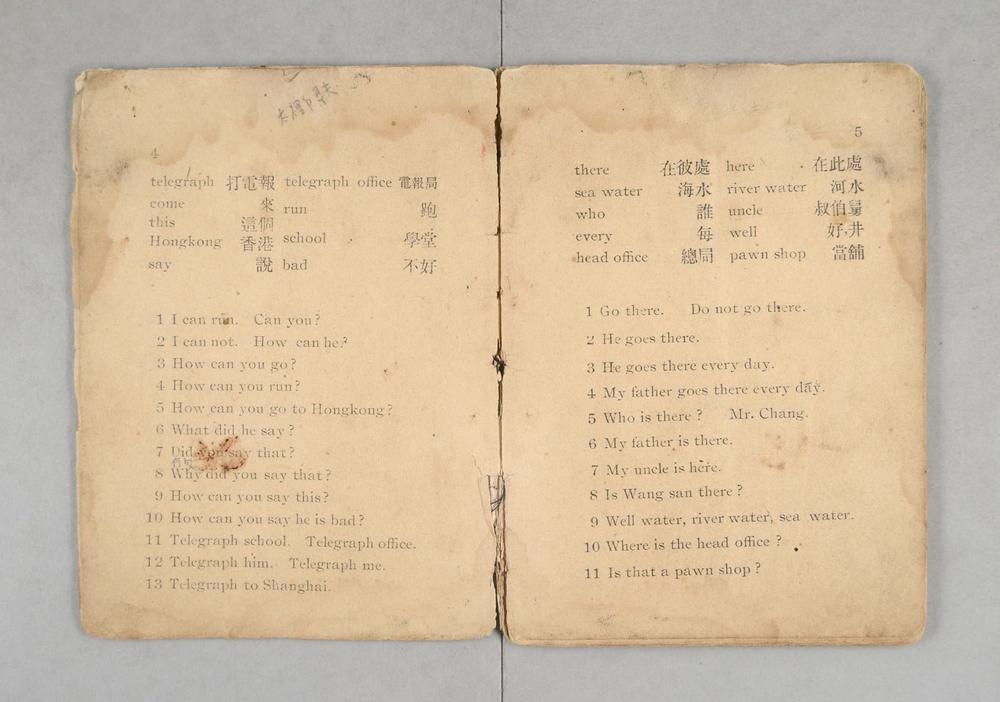 4
telegraph 打電報 telegraph office 電報局
come 來 run 跑
this 這個
Hongkong 香港 school 學堂
say 說 bad 不好
1 I can run. Can you?
2 I can not. How can he?
3 How can you go?
4 How can you run?
5 How can you go to Hongkong?
6 What did he say?
7 Did you say that?
8 Why did you say that?
9 How can you say this?
10 How can you say he is bad?
11 Telegraph school. Telegraph office.
12 Telegraph him. Telegraph me.
13 Telegraph to Shanghai.
5
there 在彼處 here 在此處
sea water 海水 river water 河水
who 誰 uncle 叔伯舅
every 每 well 好,井
head office 總局 pawn shop 當舖
1 Go there. Do not go there.
2 He goes there.
3 He goes there every day.
4 My father goes there every day.
5 Who is there? Mr. Chang.
6 My father is there.
7 My uncle is here.
8 Is Wang san there?
9 Well water, river water, sea water.
10 Where is the head office?
11 Is that a pawn shop?